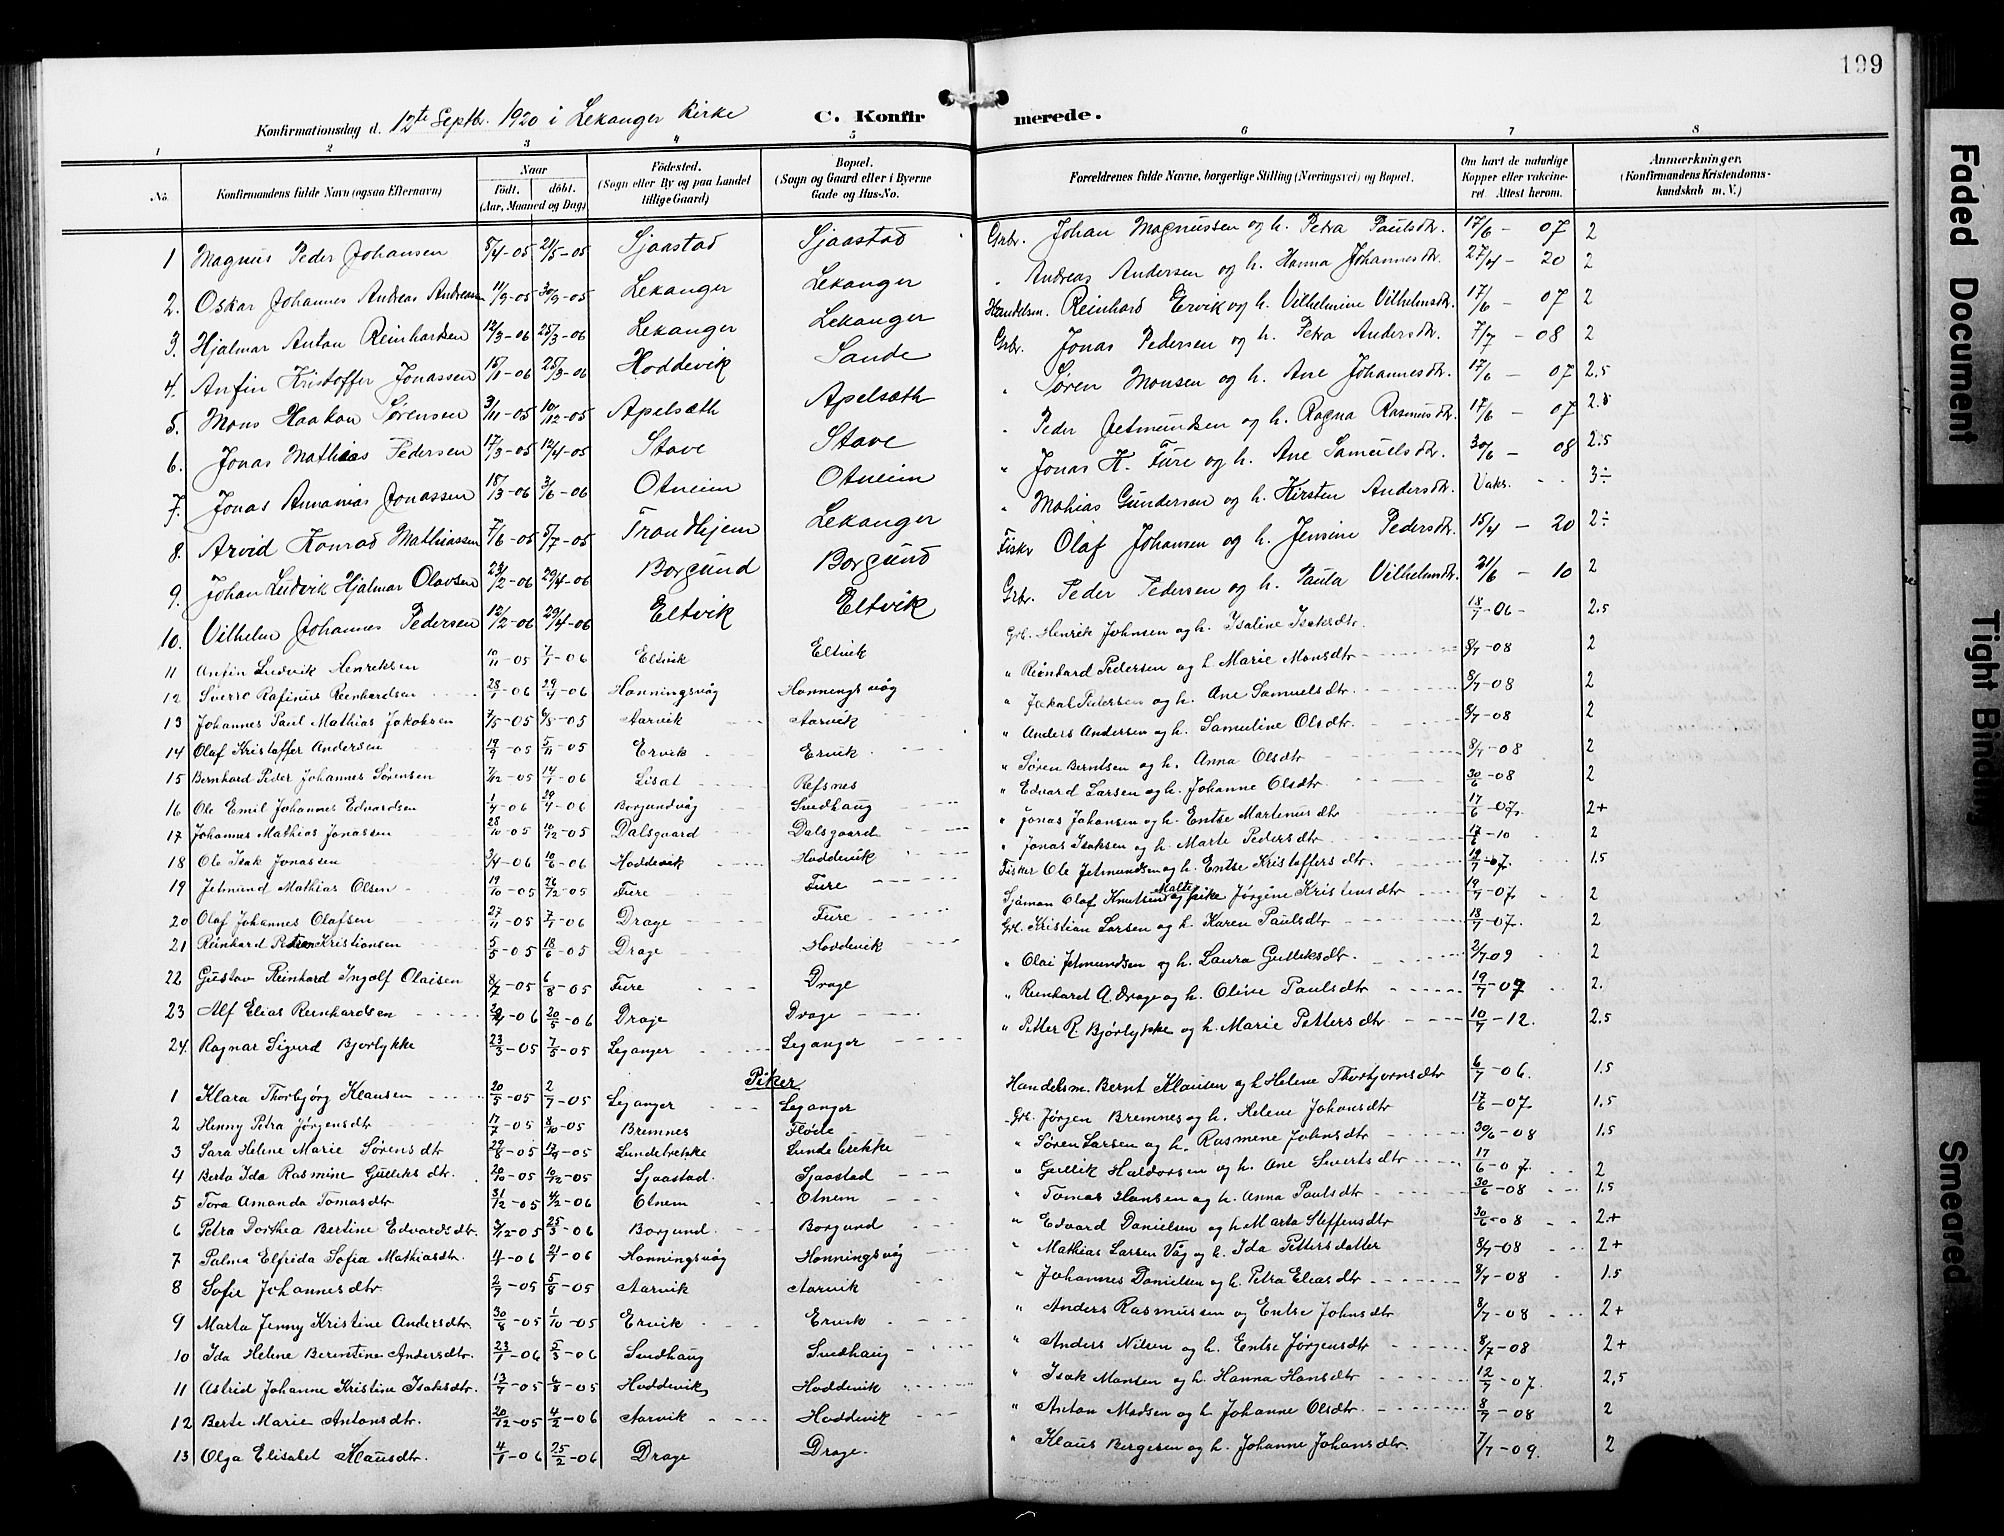 199
Konfirmationsdag d. 12te Septbr. 1920 i Lekanger Kirke C. Konfirmerede.
1 2 3 4 5 6 7 8
No. Konfirmandens fulde Navn (ogsaa Efternavn) Naar födt. döbt. (Aar, Maaned og Dag) Födested. (Sogn eller By og paa Landet tillige Gaard) Bopæl. (Sogn og Gaard eller i Byerne Gade og Hus-No. Forældrenes fulde Navne, borgerlige Stilling (Næringsvei) og Bopæl. Om havt de naturlige Kopper eller vakcineret. Attest herom. Anmærkninger, (Konfirmandens Kristendomskundskab m. V.)
1 Magnus Peder Johansen 8/4-05 21/5-05 Sjaastad Sjaastad Grbr. Johan Magnussen og h. Petra Paulsdtr. 17/6 - 07 2
2. Oskar Johannes Andreas Andreasen 11/9-05 30/9-05 Lekanger Lekanger " Andreas Andersen og h. Hanna Johannesdtr. 27/4 - 20 2
3. Hjalmar Anton Reinhardsen 12/3-06 25/3-06 Lekanger Lekanger Handelsm. Reinhard Ervik og h. Vilhelmine Vilhelmsdtr. 17/6 - 07 2
4. Anfin Kristoffer Jonassen 15/1-06 25/3-06 Hoddevik Sande Grbr. Jonas Pedersen og h. Petra Andersdtr. 7/7 - 08 2
5. Mons Haakon Sørensen 3/11-05 10/12-05 Apelsæth Apelsæth " Søren Monsen og h. Ane Johannesdtr. 17/6 - 07 2.5
6. Jonas Mathias Pedersen 17/3-05 12/4-05 Stave Stave " Peder Jetmundsen og h. Ragna Rasmusdtr. 17/6 - 07 2.5
7. Jonas Annanias Jonassen 18/3-06 3/6-06 Otneim Otneim " Jonas K. Fure og h. Ane Samuelsdtr. 30/6 - 08 2.5
8. Arvid Konrad Mathiassen 7/6-05 5/7-05 Trondhjem Lekanger " Mathias Gundersen og h. Kirsten Andersdtr. Vakc. - - 3÷
9. Johan Ludvik Hjalmar Olavsen 24/2-06 29/4-06 Borgund Borgund Fiskr Olaf Johansen og h. Jensine Pedersdtr. 15/4 - 20 2÷
10. Vilhelm Johannes Pedersen 12/2-06 29/4-06 Eltvik Eltvik Grbr. Peder Pedersen og h. Paula Vilhelmsdtr. 21/6 - 10 2
11 Anfin Ludvik Henriksen 10/11-05 7/1-06 Eltvik Eltvik Grb. Henrik Johnsen og h. Isaline Isaksdtr. 18/7-06- 2.5
12 Sverre Rafinus Reinhardsen 28/1-06 29/4-06 Honningsvåg Honningsvåg " Reinhard Pedersen og h. Marie Monsdtr 8/7-08 2
13 Johannes Paul Mathias Jakobsen 7/5-05 6/5-05 Aarvik Aarvik " Jakob Pedersen og h. Ane Samuelsdtr. 8/7-08 2
14 Olaf Kristoffer Andersen 19/9-05 5/11-05 Ervik Ervik " Anders Andersen og h. Samuline Olsdtr. 8/7-08 2
15 Bernhard Peder Johannes Sørensen 7/12-05 14/1-06 Lisæt Refsnes " Søren Berntsen og h. Anna Olsdtr 8/7-08 2
16 Ole Emil Johannes Edvardsen 1/4-06 29/4-06 Borgundvåg Svedhaug " Edvard Larsen og h. Johanne Olsdtr. 30/6-08 2
17 Johannes Mathias Jonassen 28/10-05 10/12-05 Dalsgaard Dalsgaard " Jonas Johansen og h. Entse Martinusdtr 17/6-07. 2+
18 Ole Isak Jonassen 3/4-06 10/6-06 Hoddevik Hoddevik " Jonas Isaksen og h. Marte Pedersdtr. 17/6-10 2
19 Jetmund Mathias Olsen 19/10-05 26/12-05 Fure Fure Fisker Ole Jetmundsen og h. Entse Kristoffersdtr. 19/7-07. 1.5
20 Olaf Johannes Olafsen 27/11-05 7/1-06 Drage Fure Sjåman Olaf Knutsen og pike Malte Jørgine Kristensdtr 19/7-07. 2
21 Reinhard Petter Kristiansen 5/5-05 18/6-05 Drage Hoddevik Grb. Kristian Larsen og h. Karen Paulsdtr 18/7-07. 2
22 Gustav Reinhard Ingolf Olaisen 8/7-05 6/8-05 Fure Drage " Olai Jetmundsen og h. Laura Gulliksdtr. 2/7 09 2
23 Alf Elias Reinhardsen 29/4-06 20/5-06 Drage Drage " Reinhard A. Drage og h. Oline Paulsdtr 19/7-07 2.
24. Ragnar Sigurd Bjørlykke 23/3-05 7/5-05 Leganger Leganger " Petter R. Bjørlykke og h. Marie Pettersdtr 10/7-12. 2.5
Piker
1 Klara Thorbjørg Klausen 20/5-05 2/7-05 Leganger Leganger Handelsm. Bernt Klausen og h. Helene Thorbjørnsdtr 6/7-06. 1.5
2 Henny Petra Jørgensdtr 17/7-05 8/10-05 Bremnes Fløde Grb. Jørgen Bremnes og h. Helene Johansdtr 17/6-07. 1.5
3 Sara Helene Marie Sørensdtr 29/8-05 17/9-05 Lundebrekke Lundebrekke " Søren Larsen og h. Rasmene Johnsdtr 30/6-08 1.5
4 Berta Ida Rasmine Gulliksdtr 20/10-05 10/12-05 Sjaastad. Sjaastad " Gullik Haldorsen og h. Ane Sivertsdtr 17/6-07. 2
5 Tora Amanda Tomasdtr 31/12-05 4/2-06 Otnem Otnem " Tomas Hansen og h. Anna Paulsdtr 30/6-08 1.5
6 Petra Dorthea Bertine Edvardsdtr. 3/12-05 25/3-06 Borgund. Borgund " Edvard Danielsen og h. Marta Steffensdtr 30/6-08 2+
7 Palma Elfrida Sofia Mathiasdtr. 4/4-06 21/7-06 Honningsvåg Honningsvåg " Mathias Larsen Våg og h. Ida Pettersdatter 8/7-08 2+
8 Sofie Johannesdtr. 2/7-05 5/8-05 Aarvik Aarvik " Johannes Danielsen og h. Petra Eliasdtr 8/7-08 1.5
9 Marta Jenny Kristine Andersdtr. 30/8-05 1/10-05 Ervik Ervik " Anders Rasmussen og Entse Johnsdtr 8/7-08 2+
10 Ida Helene Berntine Andersdtr. 23/1-06 5/3-06 Svedhaug Svedhaug " Anders Nilsen og h. Entse Jørgensdtr 8/7-08 2+
11 Astrid Johanne Kristine Isaksdtr. 13/7-05 6/8-05 Hoddevik Hoddevik " Isak Mansen og h. Hanna Hansdtr 12/7-07. 2.5
12 Berte Marie Antonsdtr. 20/12-05 4/2-06 Aarvik Hoddevik " Anton Madsen og h. Johanne Olsdtr. 8/7-08 2
13 Olga Elisabet Klausdtr. 4/1-06 25/2-06 Drage Drage. " Klaus Bergesen og h. Johanne Johansdtr. 7/7-09. 2
Faded Document
Tight Binding
Smeared